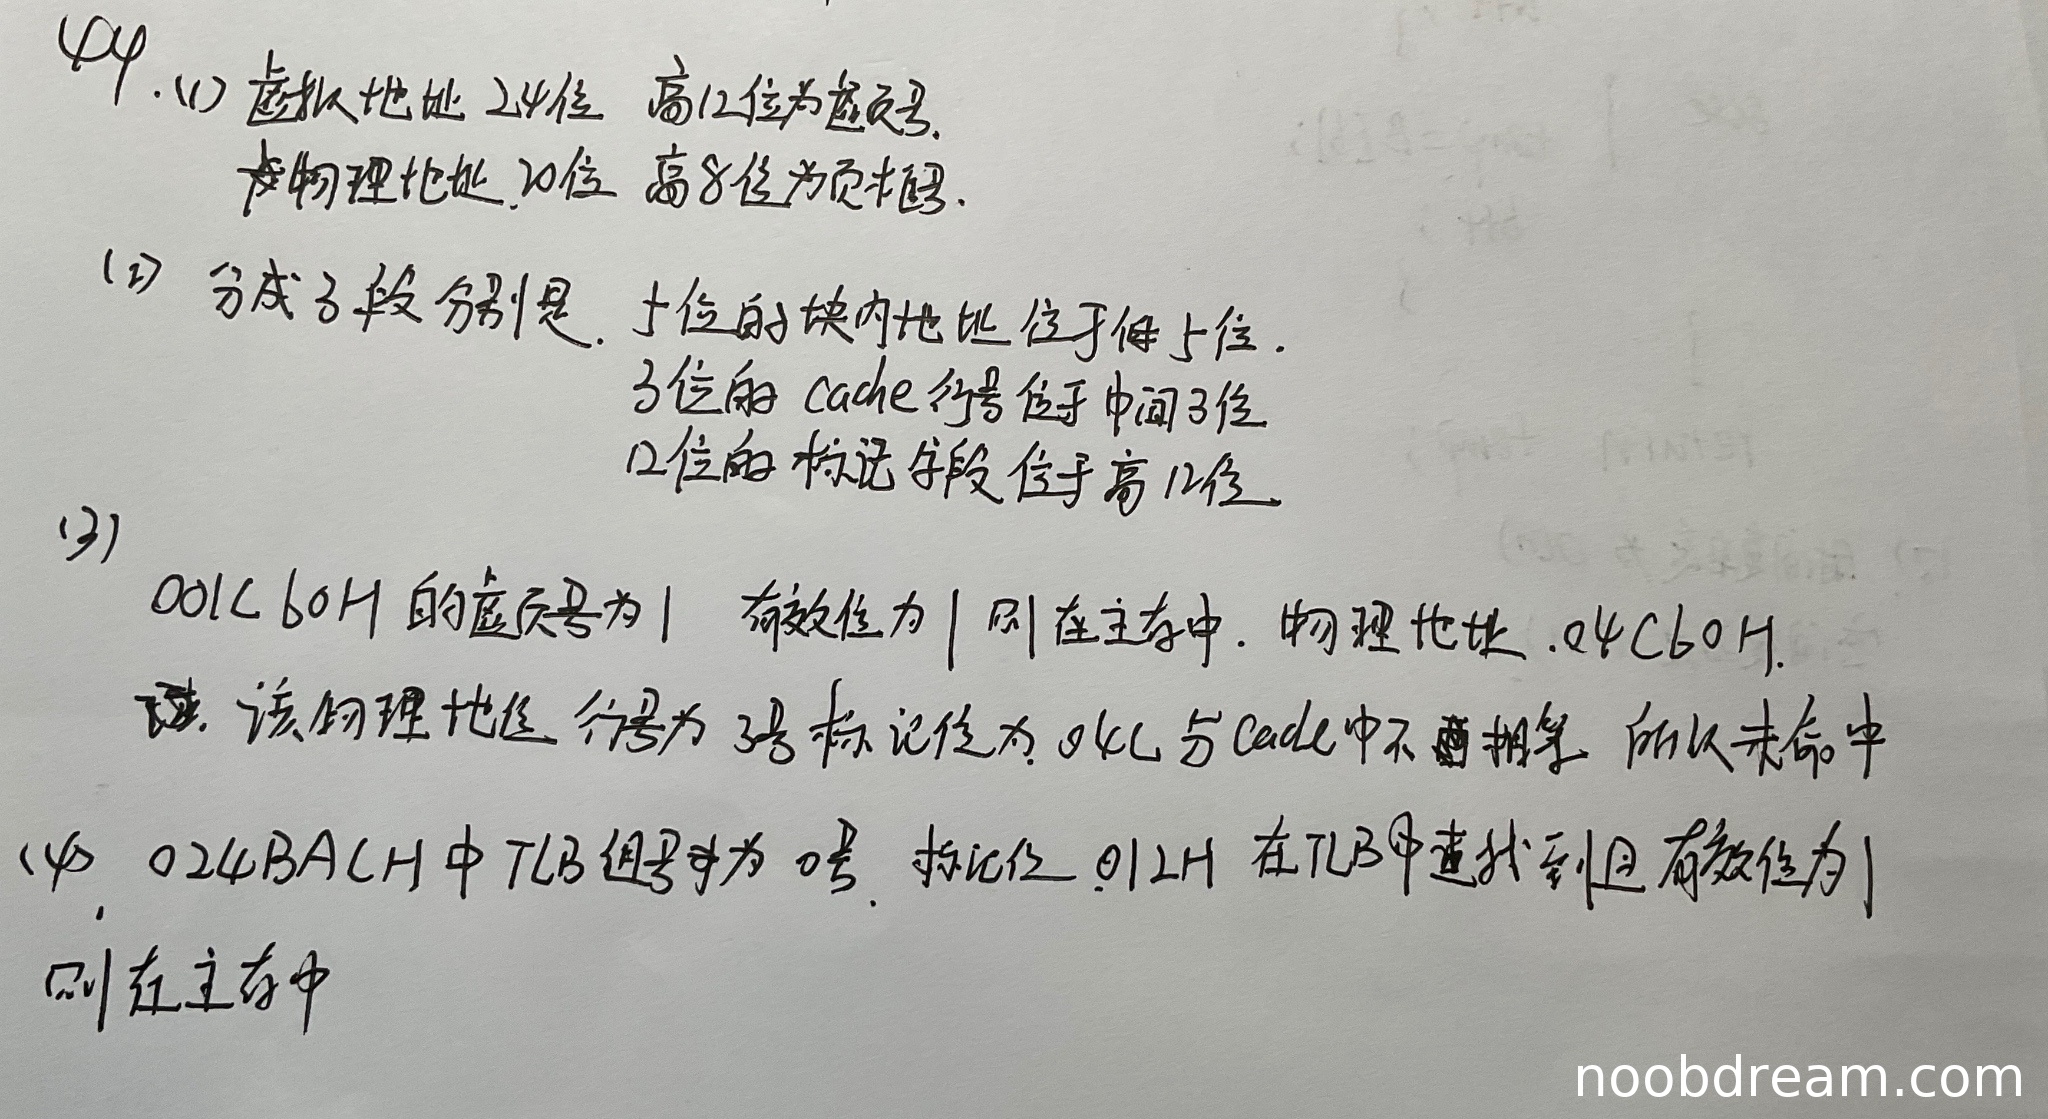 44.(1) 虚拟地址 24位 高12位为虚页号.
物理地址.20位 高8位为页框号.
(2) 分成3段 分别是. 5位的块内地址位于低5位.
3位的 cache 行号位于中间3位
12位的标记字段位于高12位
(3)
001C60H 的虚页号为1 有效位为1 则在主存中. 物理地址.04C60H.
该物理地位 行号为 3号 标记位为.04C 与cache中不相等 所以未命中
(4) 024BACH 中 TLB 组号为 0号. 标记位 .012H 在TLB中查找到且有效位为1
则在主存中
noobdream.com